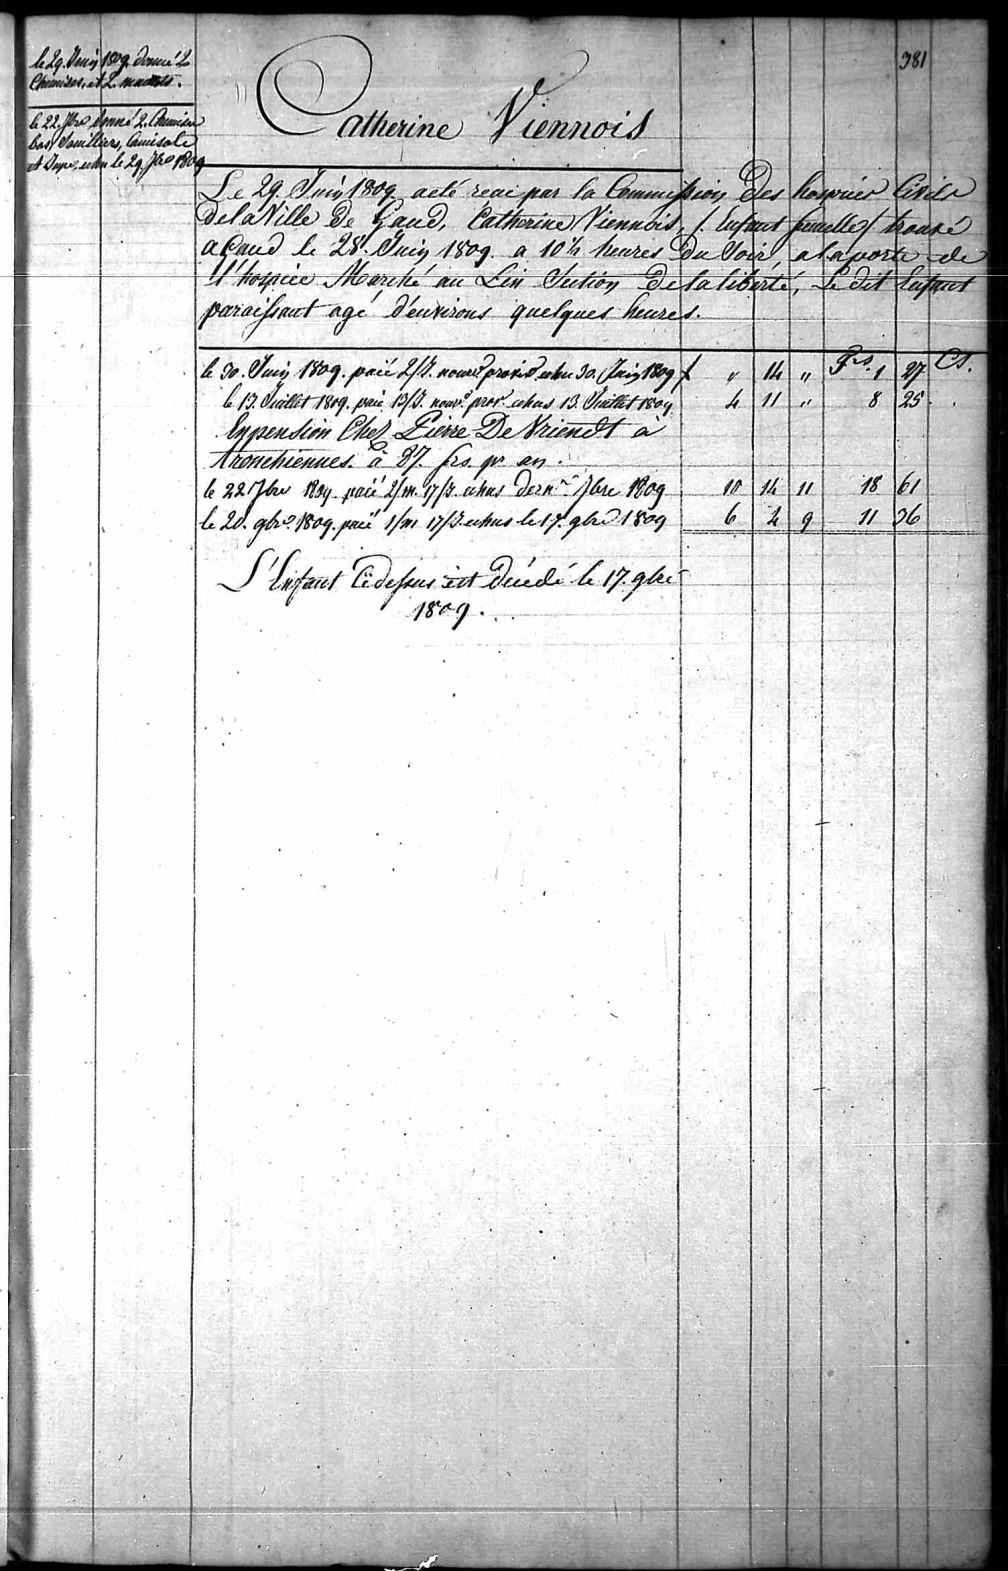 381
le 29. Juin 1809. donné 2
Chemises, et 2
le 22. 7bre donné 2. Chemises
bas, Souilliers, Camisole
et Jupe, echu le 29. 7bre 1809
Catherine Viennois
Le 29. Juin 1809 acté reçu par la Commission Des hospices Civils
de la Ville De Gand, Catherine Viennois, /. Enfant femelle / trouvé
a Gand le 28. Juin 1809. a 10½ heures Du Soir, a la porte de
l'hospice Marché au Lin Section De la liberté, Le dit Enfant
paraissant agé d'environs quelques heures.
Frs. Cs.
le 30. Juin 1809. paié 2/J. nource provis. echu 30. Juin 1809 f " 14 " 1 27
le 13. Juillet 1809. paié 13/J. nource prov. echus 13. Juillet 1809 4 11 " 8 25
En pension Chez Pierre De Vriendt à
tronchiennes. à 87. frs. pr an.
le 22 7bre 1809. paié 2/m. 17/J. echus dern.r 7bre 1809 10 14 11 18 61
le 20. 9bre 1809. paié 1/m 17/J. echus le 17. 9bre 1809 6 2 9 11 36
L'Enfant Cidessus est Décédé le 17. 9bre
1809.